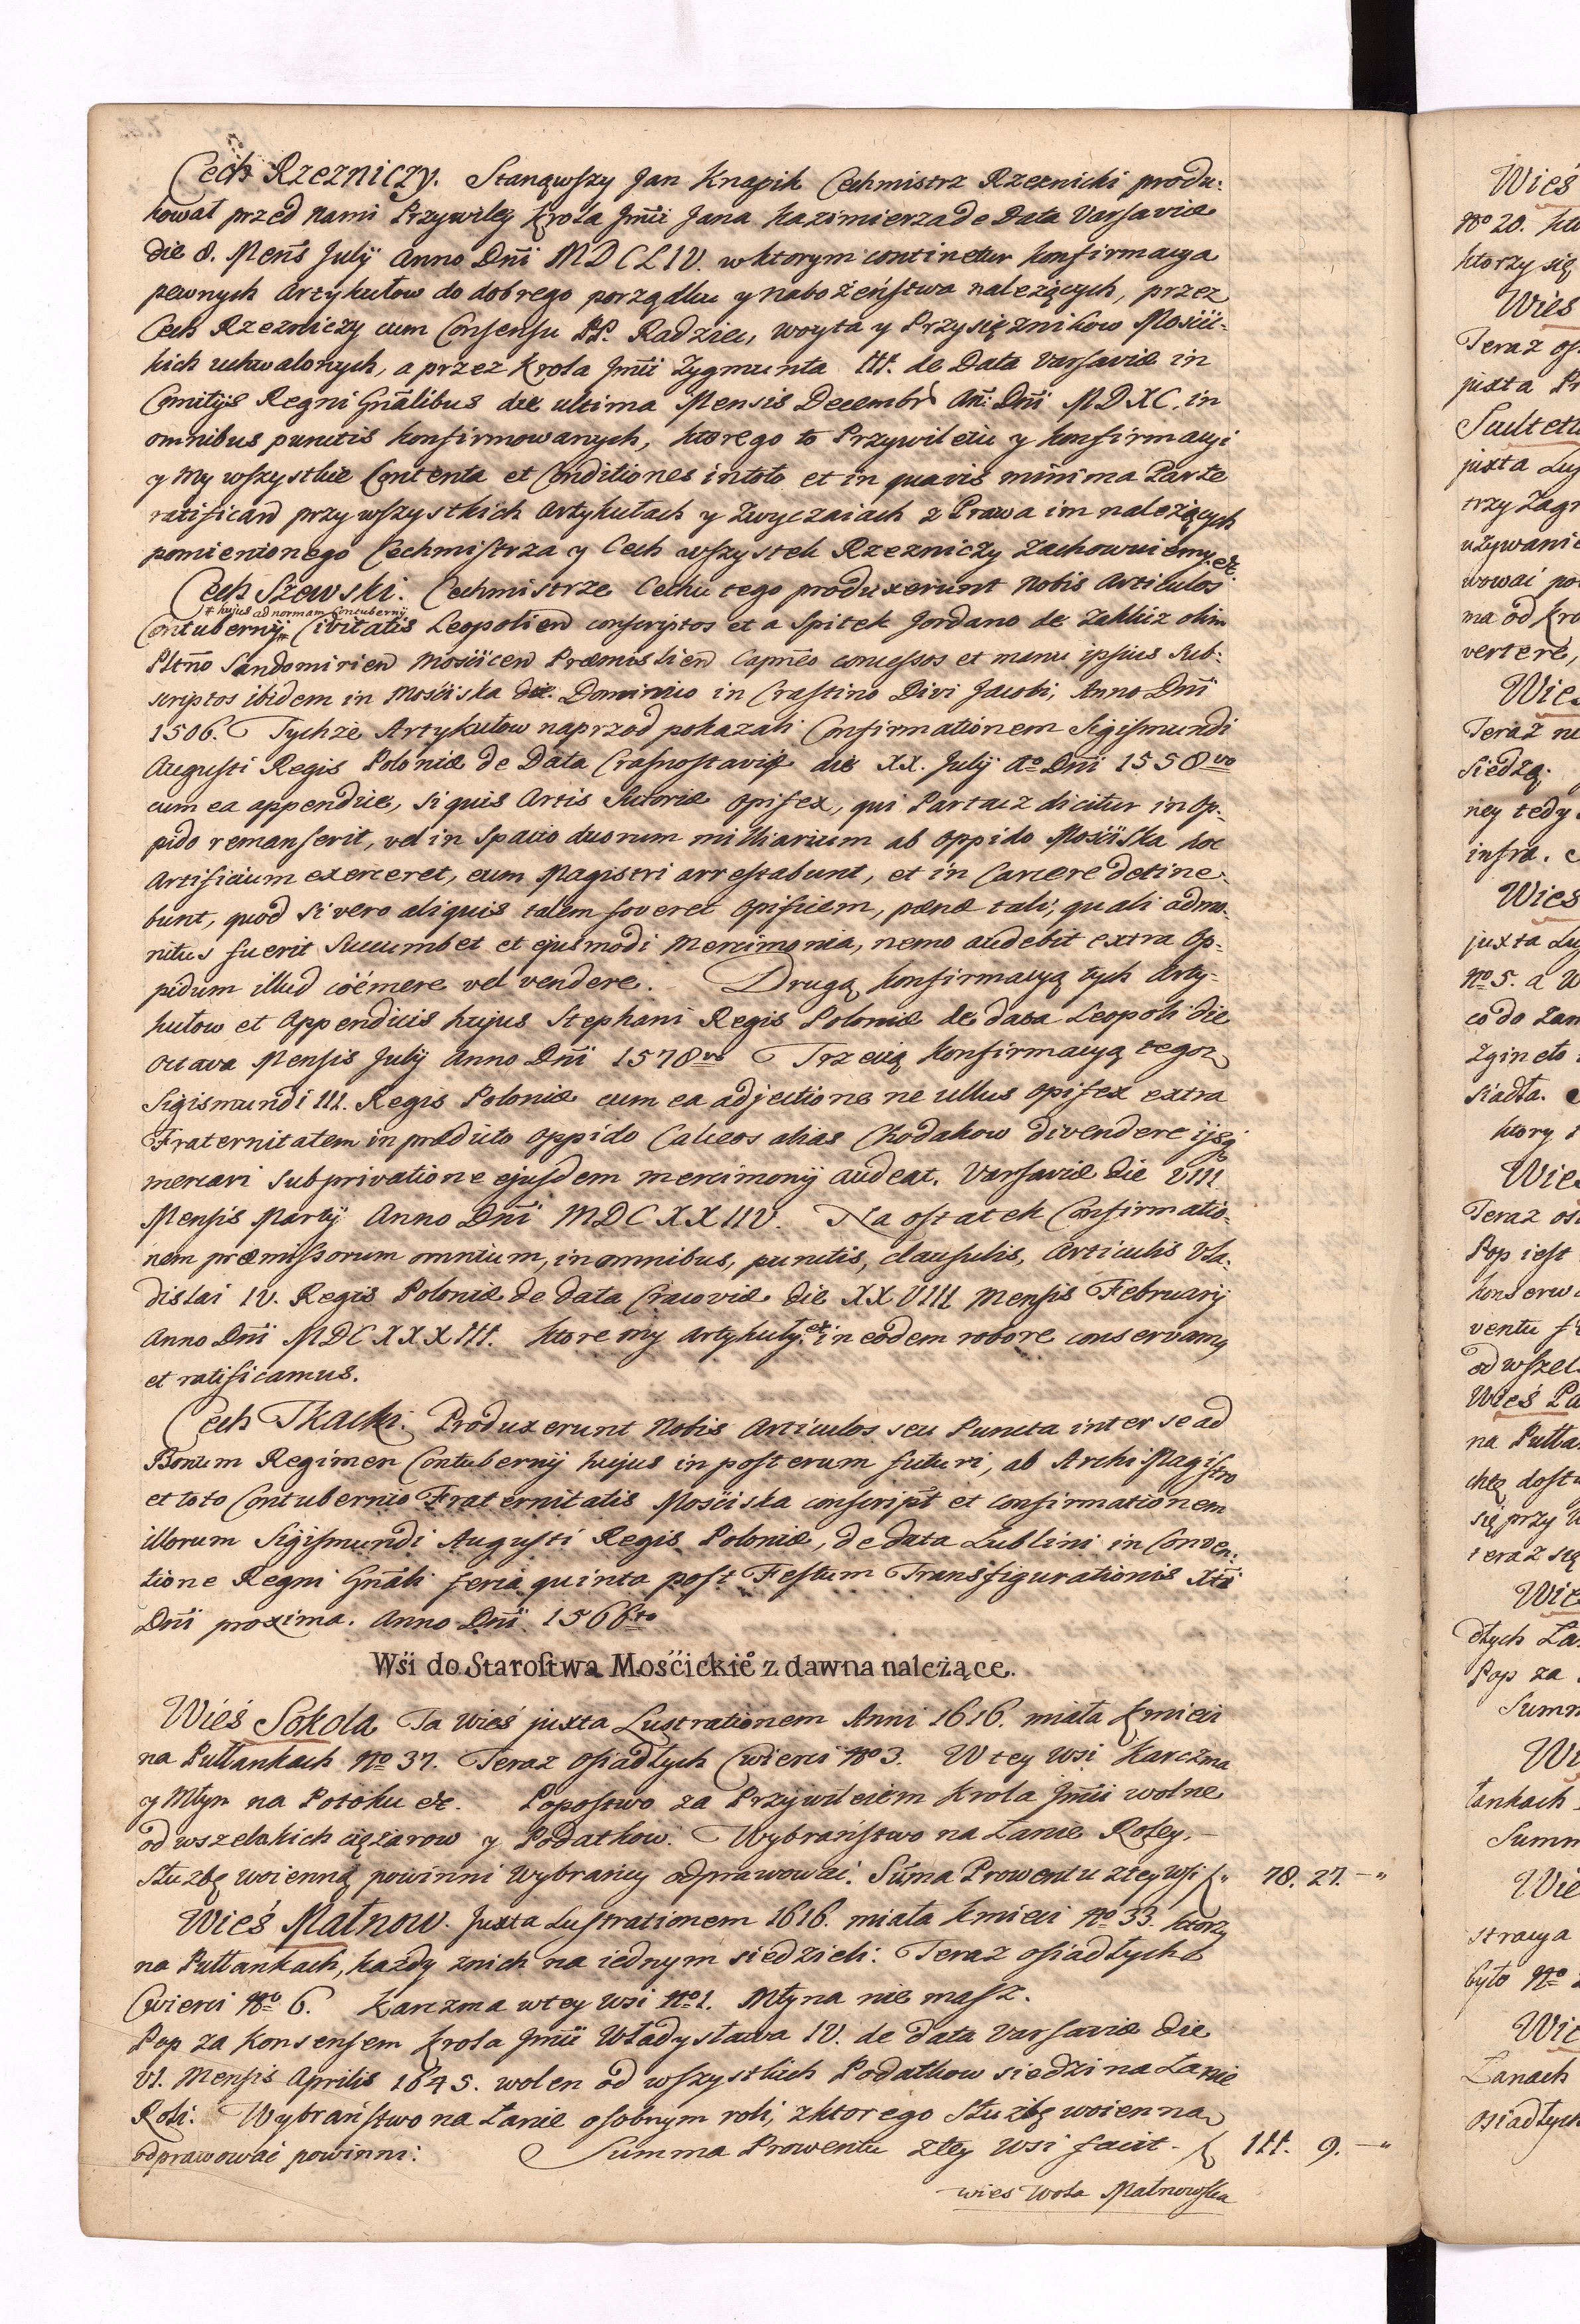 Cech Rzezniczy. Stanąwszy Jan Knapik Cechmistrz Rzeznicki produ:
kował przed nami Przywiley Krola Jm̄ci Jana Kazimierza de Data Varsaviæ
die 8. Menš July Anno Dn̄i MDCLIV. w ktorym continetur konfirmacya
pewnych Artykułow do dobrego porządku y nabożeństwa należących, przez
Cech Rzezniczy cum Consensu PP. Radziec, Woyta y Przysięznikow Mościc:
kich uchwalonych, a przez Krola Jm̄ci Zygmunta III. de Data Varsaviæ in
Comitijs Regni Gn̄alibus die ultima Mensis Decembr An: Dn̄i MDXC. in
omnibus punctis konfirmowanych, ktorego to Przywileiu y konfirmacyi
y my wszystkie Contenta et Conditiones in toto et in quavis minima Parte
ratificand przy wszystkich Artykułach y Zwyczaiach z Prawa im należących
pomienionego Cechmistrza y Cech wszystek Rzezniczy zachowuiemy. etc.
Cech Szewski. Cechmistrze Cechu tego produxerunt Nobis Articulos
‡ hujus ad normam Contubernij
Contubernij ‡ Civitatis Leopolien conscriptos et a Spitek Jordano de Zakliz olim
Pltn̄o Sandomirien Mosciicen Præmislien Capn̄eo concessos et manu ipsius Sub:
scriptos ibidem in Mościska die Dominico in Crastino Divi Jacobi, Anno Dn̄i
1506. Tychże Artykułow naprzod pokazali Confirmationem Sigismundi
Augusti Regis Poloniæ de Data Crasnostaviæ die XX. July Ao Dn̄i 1558vo
cum ea appendice, si quis Artis Sutoriæ Opifex, qui Partacz dicitur in Op:
pido remanserit, vel in Spacio duorum milliarium ab Oppido Mościska hoc
Artificium exerceret, eum Magistri arrestabunt, et in Carcere detine:
bunt, quod si vero aliquis talem foveret Opificem, pœnæ tali, quali admo:
nitus fuerit Succumbet et ejusmodi Mercimonia, nemo audebit extra Op:
pidum illud coëmere vel vendere. Drugą konfirmacyą tych Arty:
kułow et Appendicis hujus Stephani Regis Poloniæ de data Leopoli die
octava Mensis July Anno Dn̄i 1578vo Trzecią konfirmacyą tegoz
Sigismundi III. Regis Poloniæ cum ea adjectione ne ullus opifex extra
Fraternitatem in prædicto Oppido Calceos alias Chodakow divendere ijsq
mercari sub privatione ejusdem mercimonij audeat. Varsaviæ die VIII
Mensis Martij Anno Dn̄i MDCXXIIV. Na ostatek Confirmatio:
nem præmissorum omnium, in omnibus, punctis, clausulis, Articulis Vla:
dislai IV. Regis Poloniæ de data Cracoviæ die XXVIII Mensis Februarij
Anno Dn̄i MDCXXXIII. ktore my Artykuły. etc. in eodem robore conservamy
et ratificamus.
Cech Tkacki. Produxerunt Nobis Articulos seu Puncta inter se ad
Bonum Regimen Contubernij hujus in posterum futuri, ab Archi Magistro
et toto Contubernio Fraternitatis Mościska conscript et Confirmationem
illorum Sigismundi Augusti Regis Poloniæ, de data Lublini in Conven:
tione Regni Gn̄ali feria quinta post Festum Transfigurationis Xti
Dn̄i proxima. Anno Dn̄i. 1566to
Wśi do Starostwa Mośćickie° z dawna należące.
Wieś Sokola Ta Wieś juxta Lustrationem Anni 1616. miała Kmieci
na Pułłankach No 37. Teraz osiadłych Cwierci No 3. W tey Wsi Karczma
y Młyn na Potoku etc. Popostwo za Przywileiem Krola Jm̄ci wolne
od wszelakich ciężarow y Podatkow. Wybraństwo na Łanie Roley,
Służbę woienną powinni Wybrańcy odprawowac. Sum̄a Prowentu z tey Wsi f 78. 27. —"
Wieś Małnow. Juxta Lustrationem 1616. miała Kmieci No 33. ktorzy
na Pułłankach, każdy znich na iednym siedzieli: Teraz osiadłych
Cwierci No 6. Karczma w tey Wsi No 1. Młyna nie masz.
Pop za Konsensem Krola Jm̄ci Władysława IV. de data Varsaviæ die
VI. Mensis Aprilis 1645. wolen od wszystkich Podatkow siedzi na Łanie
Roli. Wybraństwo na Łanie osobnym roli, z ktorego Służbę woienną
odprawowac powinni: Summa Prowentu z tey Wsi facit - f 111. 9. —"
wies Wola Małnowska
Wieś
No 20.
ktorzy się
Wieś
Teraz
juxta
juxta
używanie
vertere,
Wieś
Teraz
Siedzą.
ney tedy
infra.
Wieś
juxta
No 5. a
co do
Zgineło
siadła.
ktory
Wieś
Teraz
Pop iest
ventu
od
Wieś
na
się przy
teraz się
Wieś
Pop za
Summ
łankach
Summ
stracya
było No
Łanach
osiadłych